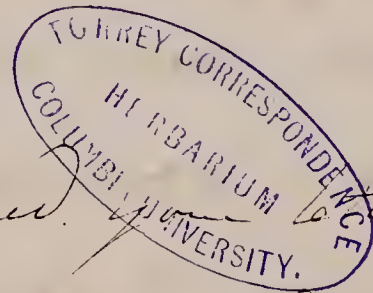 TORREY CORRESPONDENCE
HERBARIUM
COLUMBIA UNIVERSITY.
your